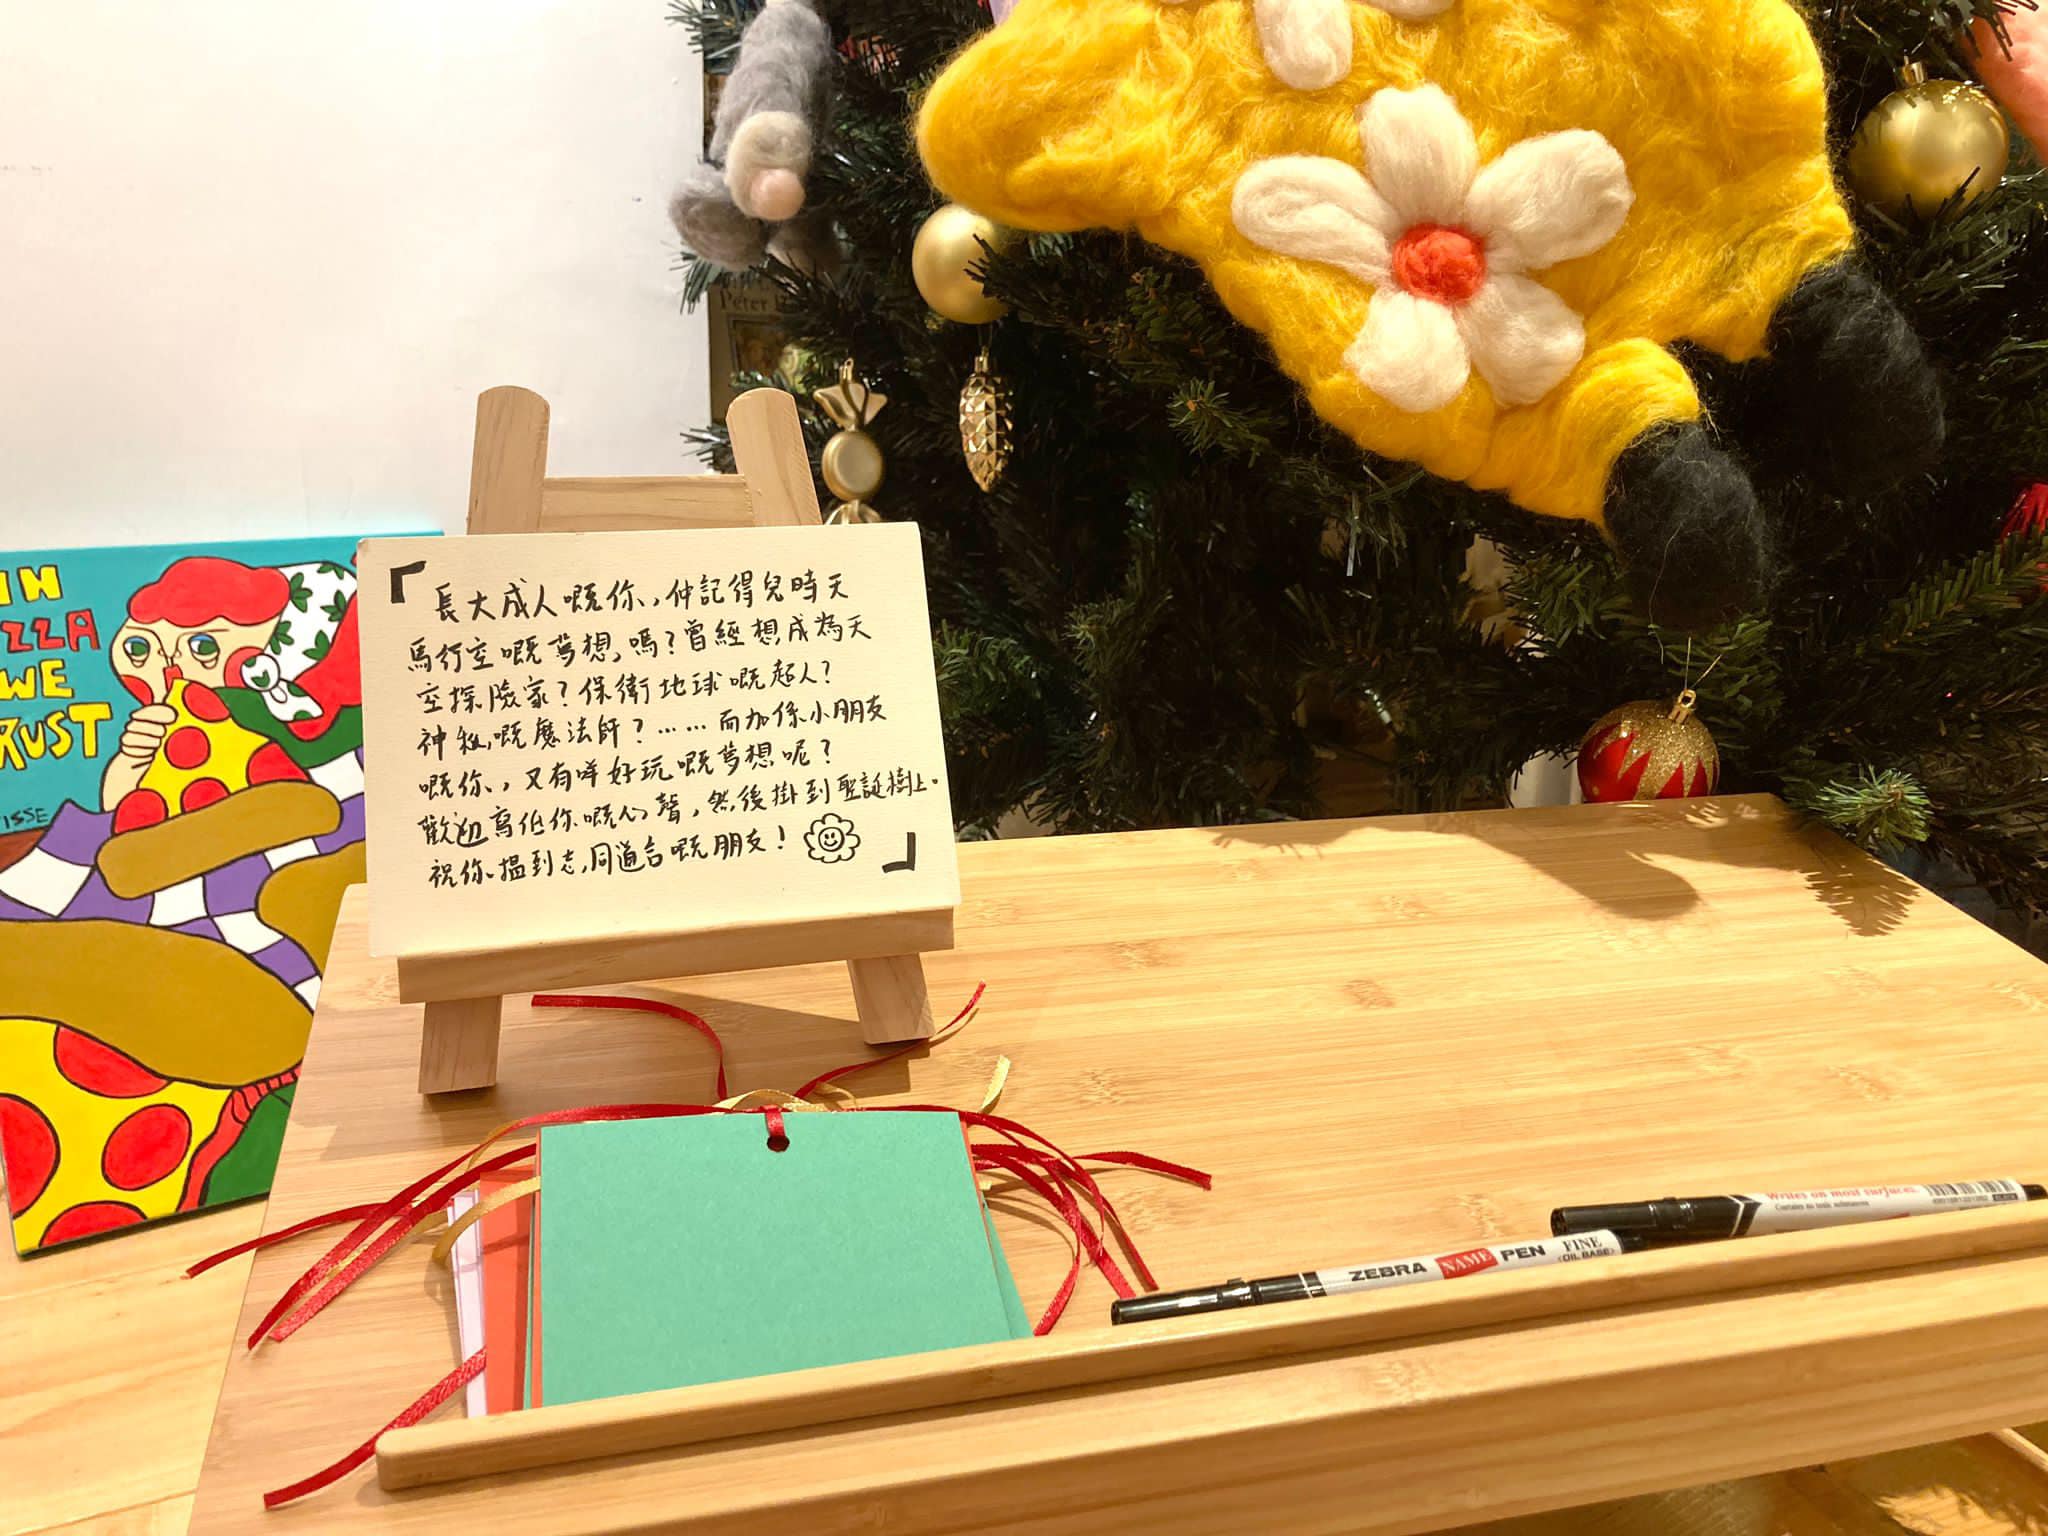 Peter
IN
ZZA
WE
RUST
ISSE
「長大成人嘅你，仲記得兒時天
馬行空嘅夢想嗎？曾經想成為天
空探險家？保衛地球嘅超人？
神秘嘅魔法師？……而加係小朋友
嘅你，又有咩好玩嘅夢想呢？
歡迎寫低你嘅心聲，然後掛到聖誕樹上。
祝你搵到志同道合嘅朋友！」
Writes on most surfaces.
ZEBRA NAME PEN FINE
(OIL BASE)